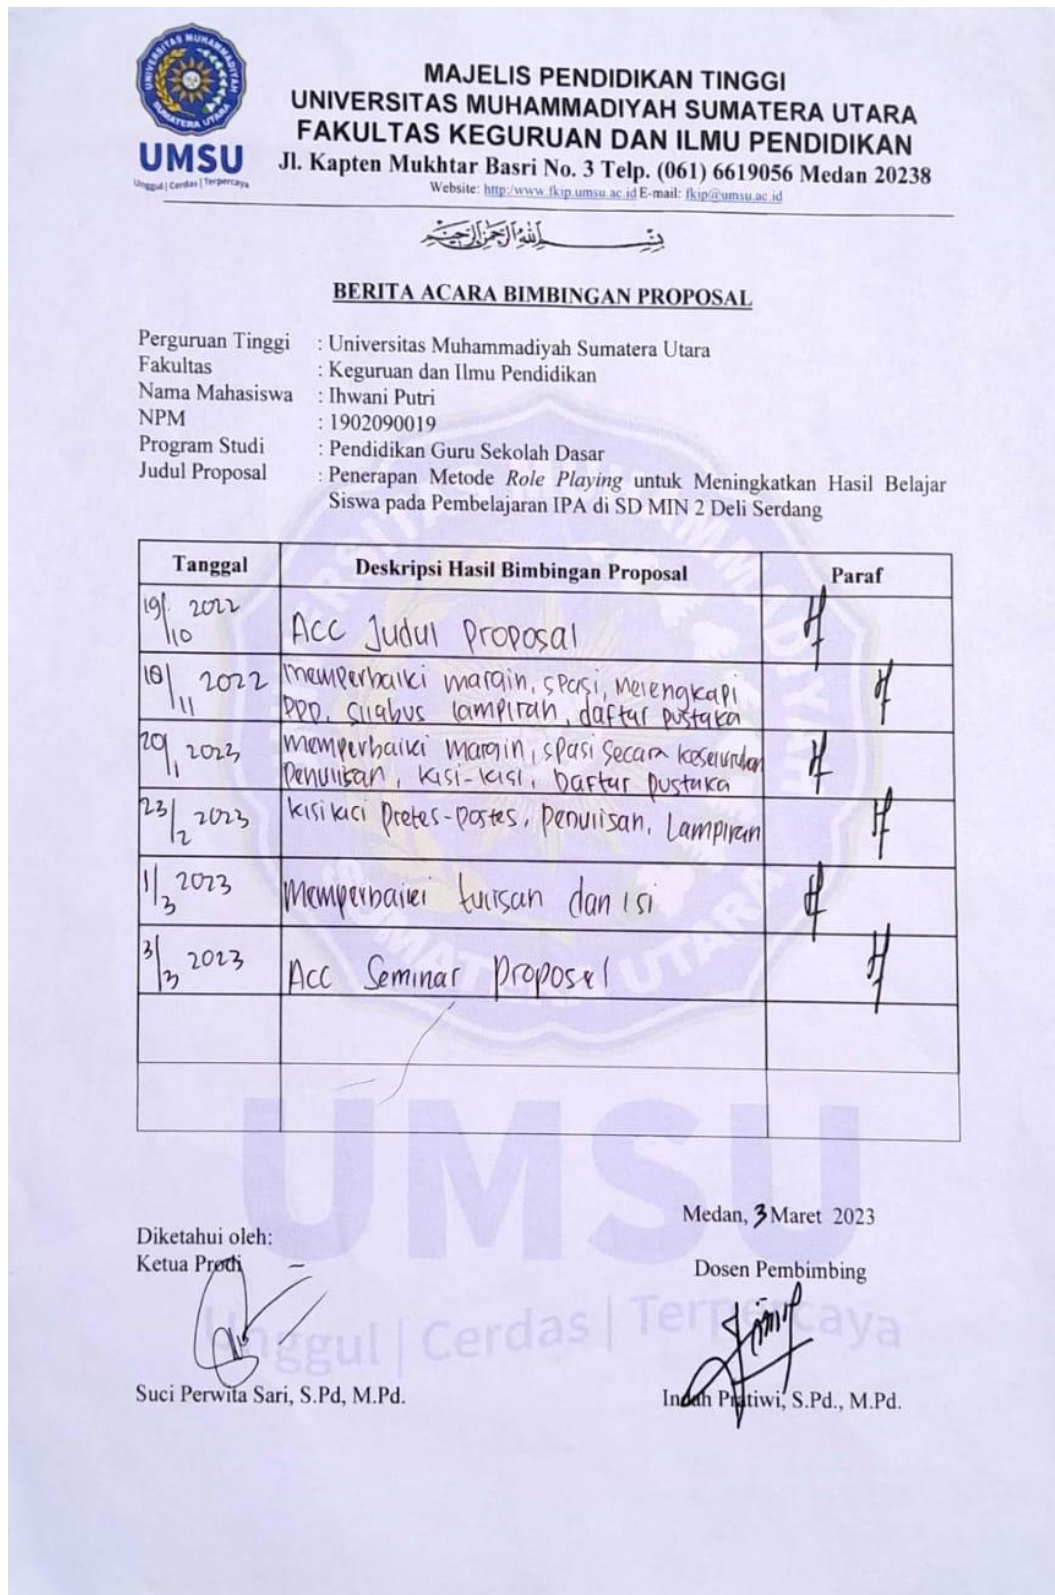 UNIVERSITAS MUHAMMADIYAH
SUMATERA UTARA
UMSU
Unggul | Cerdas | Terpercaya
MAJELIS PENDIDIKAN TINGGI
UNIVERSITAS MUHAMMADIYAH SUMATERA UTARA
FAKULTAS KEGURUAN DAN ILMU PENDIDIKAN
Jl. Kapten Mukhtar Basri No. 3 Telp. (061) 6619056 Medan 20238
Website: http:/www.fkip.umsu.ac.id E-mail: fkip@umsu.ac.id
بِسْمِ اللَّهِ الرَّحْمَنِ الرَّحِيمِ
BERITA ACARA BIMBINGAN PROPOSAL
Perguruan Tinggi : Universitas Muhammadiyah Sumatera Utara
Fakultas : Keguruan dan Ilmu Pendidikan
Nama Mahasiswa : Ihwani Putri
NPM : 1902090019
Program Studi : Pendidikan Guru Sekolah Dasar
Judul Proposal : Penerapan Metode Role Playing untuk Meningkatkan Hasil Belajar
Siswa pada Pembelajaran IPA di SD MIN 2 Deli Serdang
Tanggal Deskripsi Hasil Bimbingan Proposal Paraf
19/10 2022 Acc Judul Proposal
18/11 2022 memperbaiki margin, spasi, Melengkapi
silabus lampiran, daftar pustaka
20/1 2023 memperbaiki margin, spasi secara keseluruhan
Penulisan, kisi-kisi, Daftar Pustaka
23/2 2023 kisi kisi Pretes-postes, Penulisan, Lampiran
1/3 2023 Memperbaiki tulisan dan isi
3/3 2023 Acc Seminar Proposal
Medan, 3 Maret 2023
Diketahui oleh:
Ketua Prodi
Dosen Pembimbing
UMSU
Unggul | Cerdas | Terpercaya
Suci Perwita Sari, S.Pd, M.Pd.
Indah Pratiwi, S.Pd., M.Pd.